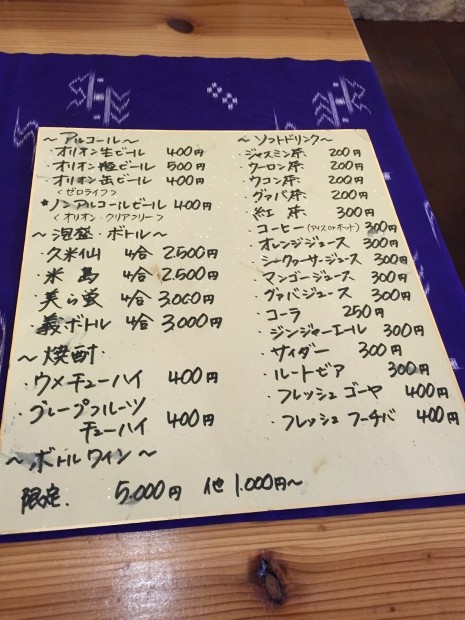 ～アルコール～
・オリオン生ビール 400円
・オリオン瓶ビール 500円
・オリオン缶ビール 400円
＜ゼロライフ＞
★ノンアルコールビール 400円
＜オリオン・クリアフリー＞
～泡盛・ボトル～
・久米仙 4合 2,500円
・米島 4合 2,500円
・美ら蛍 4合 3,000円
・義ボトル 4合 3,000円
～焼酎
・ウメチューハイ 400円
・グレープフルーツ
チューハイ 400円
～ボトルワイン～
限定. 5,000円 他 1,000円～
～ソフトドリンク～
・ジャスミン茶 200円
・ウーロン茶 200円
・ウコン茶 200円
・グァバ茶 200円
・紅茶 300円
・コーヒー(アイスorホット) 300円
・オレンジジュース 300円
・シークヮーサージュース 300円
・マンゴージュース 300円
・グァバジュース 300円
・コーラ 250円
・ジンジャーエール 300円
・サイダー 300円
・ルートビア 300円
・フレッシュ ゴーヤ 400円
・フレッシュ フーチバ 400円